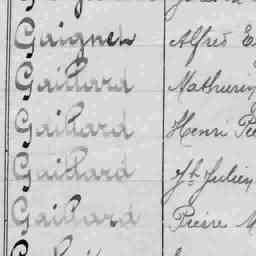 Gaigneu Alfred E
Gaillard Mathurin
Gaillard Henri Pie
Gaillard Jh Julien
Gaillard Pierre M